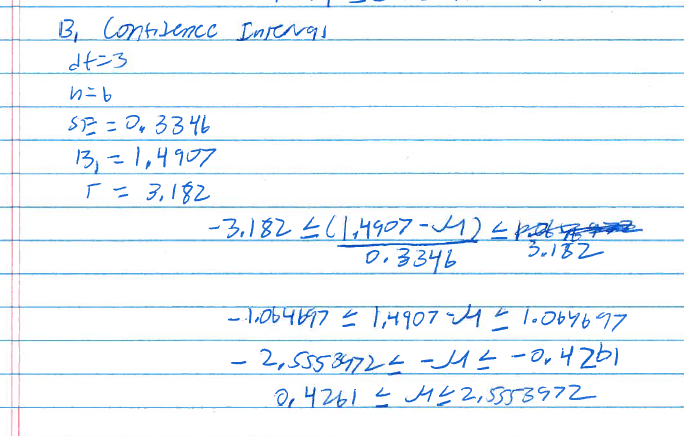 B₁ Confidence Interval
df=3
n=6
SE = 0.3346
B₁ = 1.4907
T = 3.182
-3.182 ≤ (1.4907-μ) ≤ 3.182
0.3346
-1.064697 ≤ 1.4907-μ ≤ 1.064697
-2.5553972 ≤ -μ ≤ -0.4261
0.4261 ≤ μ ≤ 2.5553972